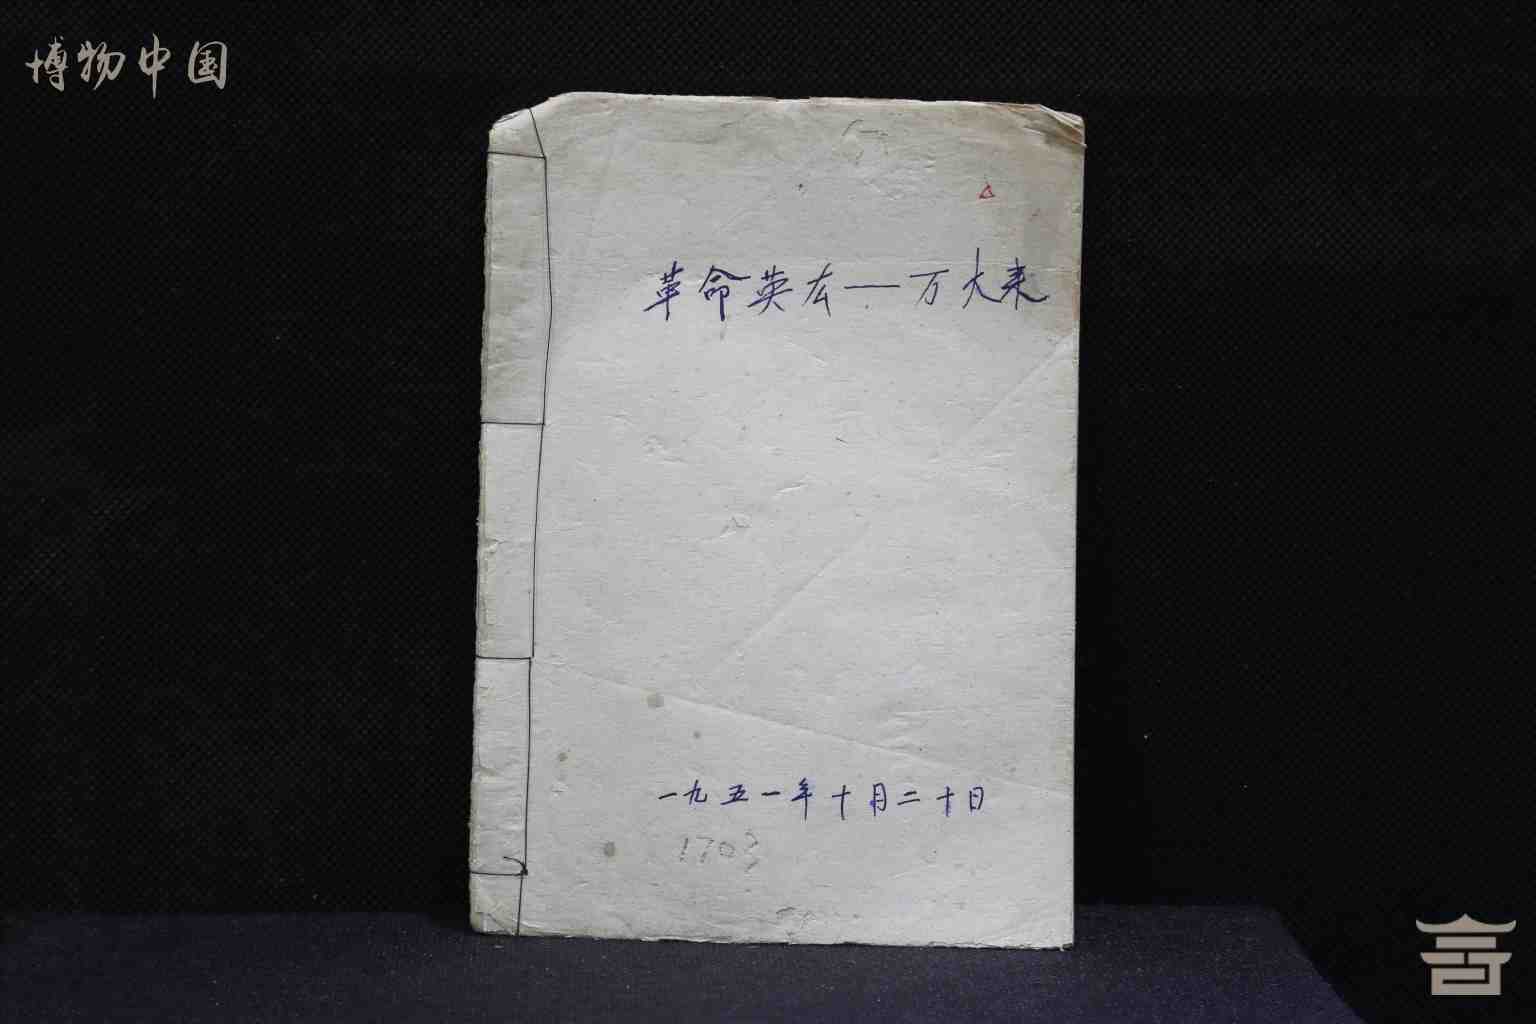 博物中国
革命英厷—万大来
一九五一年十月二十日
1703